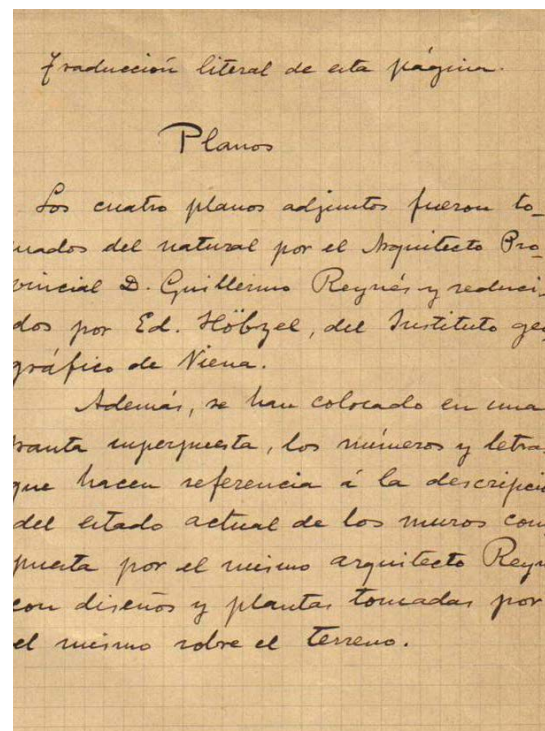 Traducción literal de esta página.
Planos
Los cuatro planos adjuntos fueron to-
mados del natural por el Arquitecto Pro-
vincial D. Guillermo Reynés y reduci-
dos por Ed. Höbzel, del Instituto geo
gráfico de Viena.
Además, se han colocado en una
planta superpuesta, los números y letras
que hacen referencia á la descripci
del estado actual de los muros com
puesta por el mismo arquitecto Reyn
con diseños y plantas tomadas por
el mismo sobre el terreno.